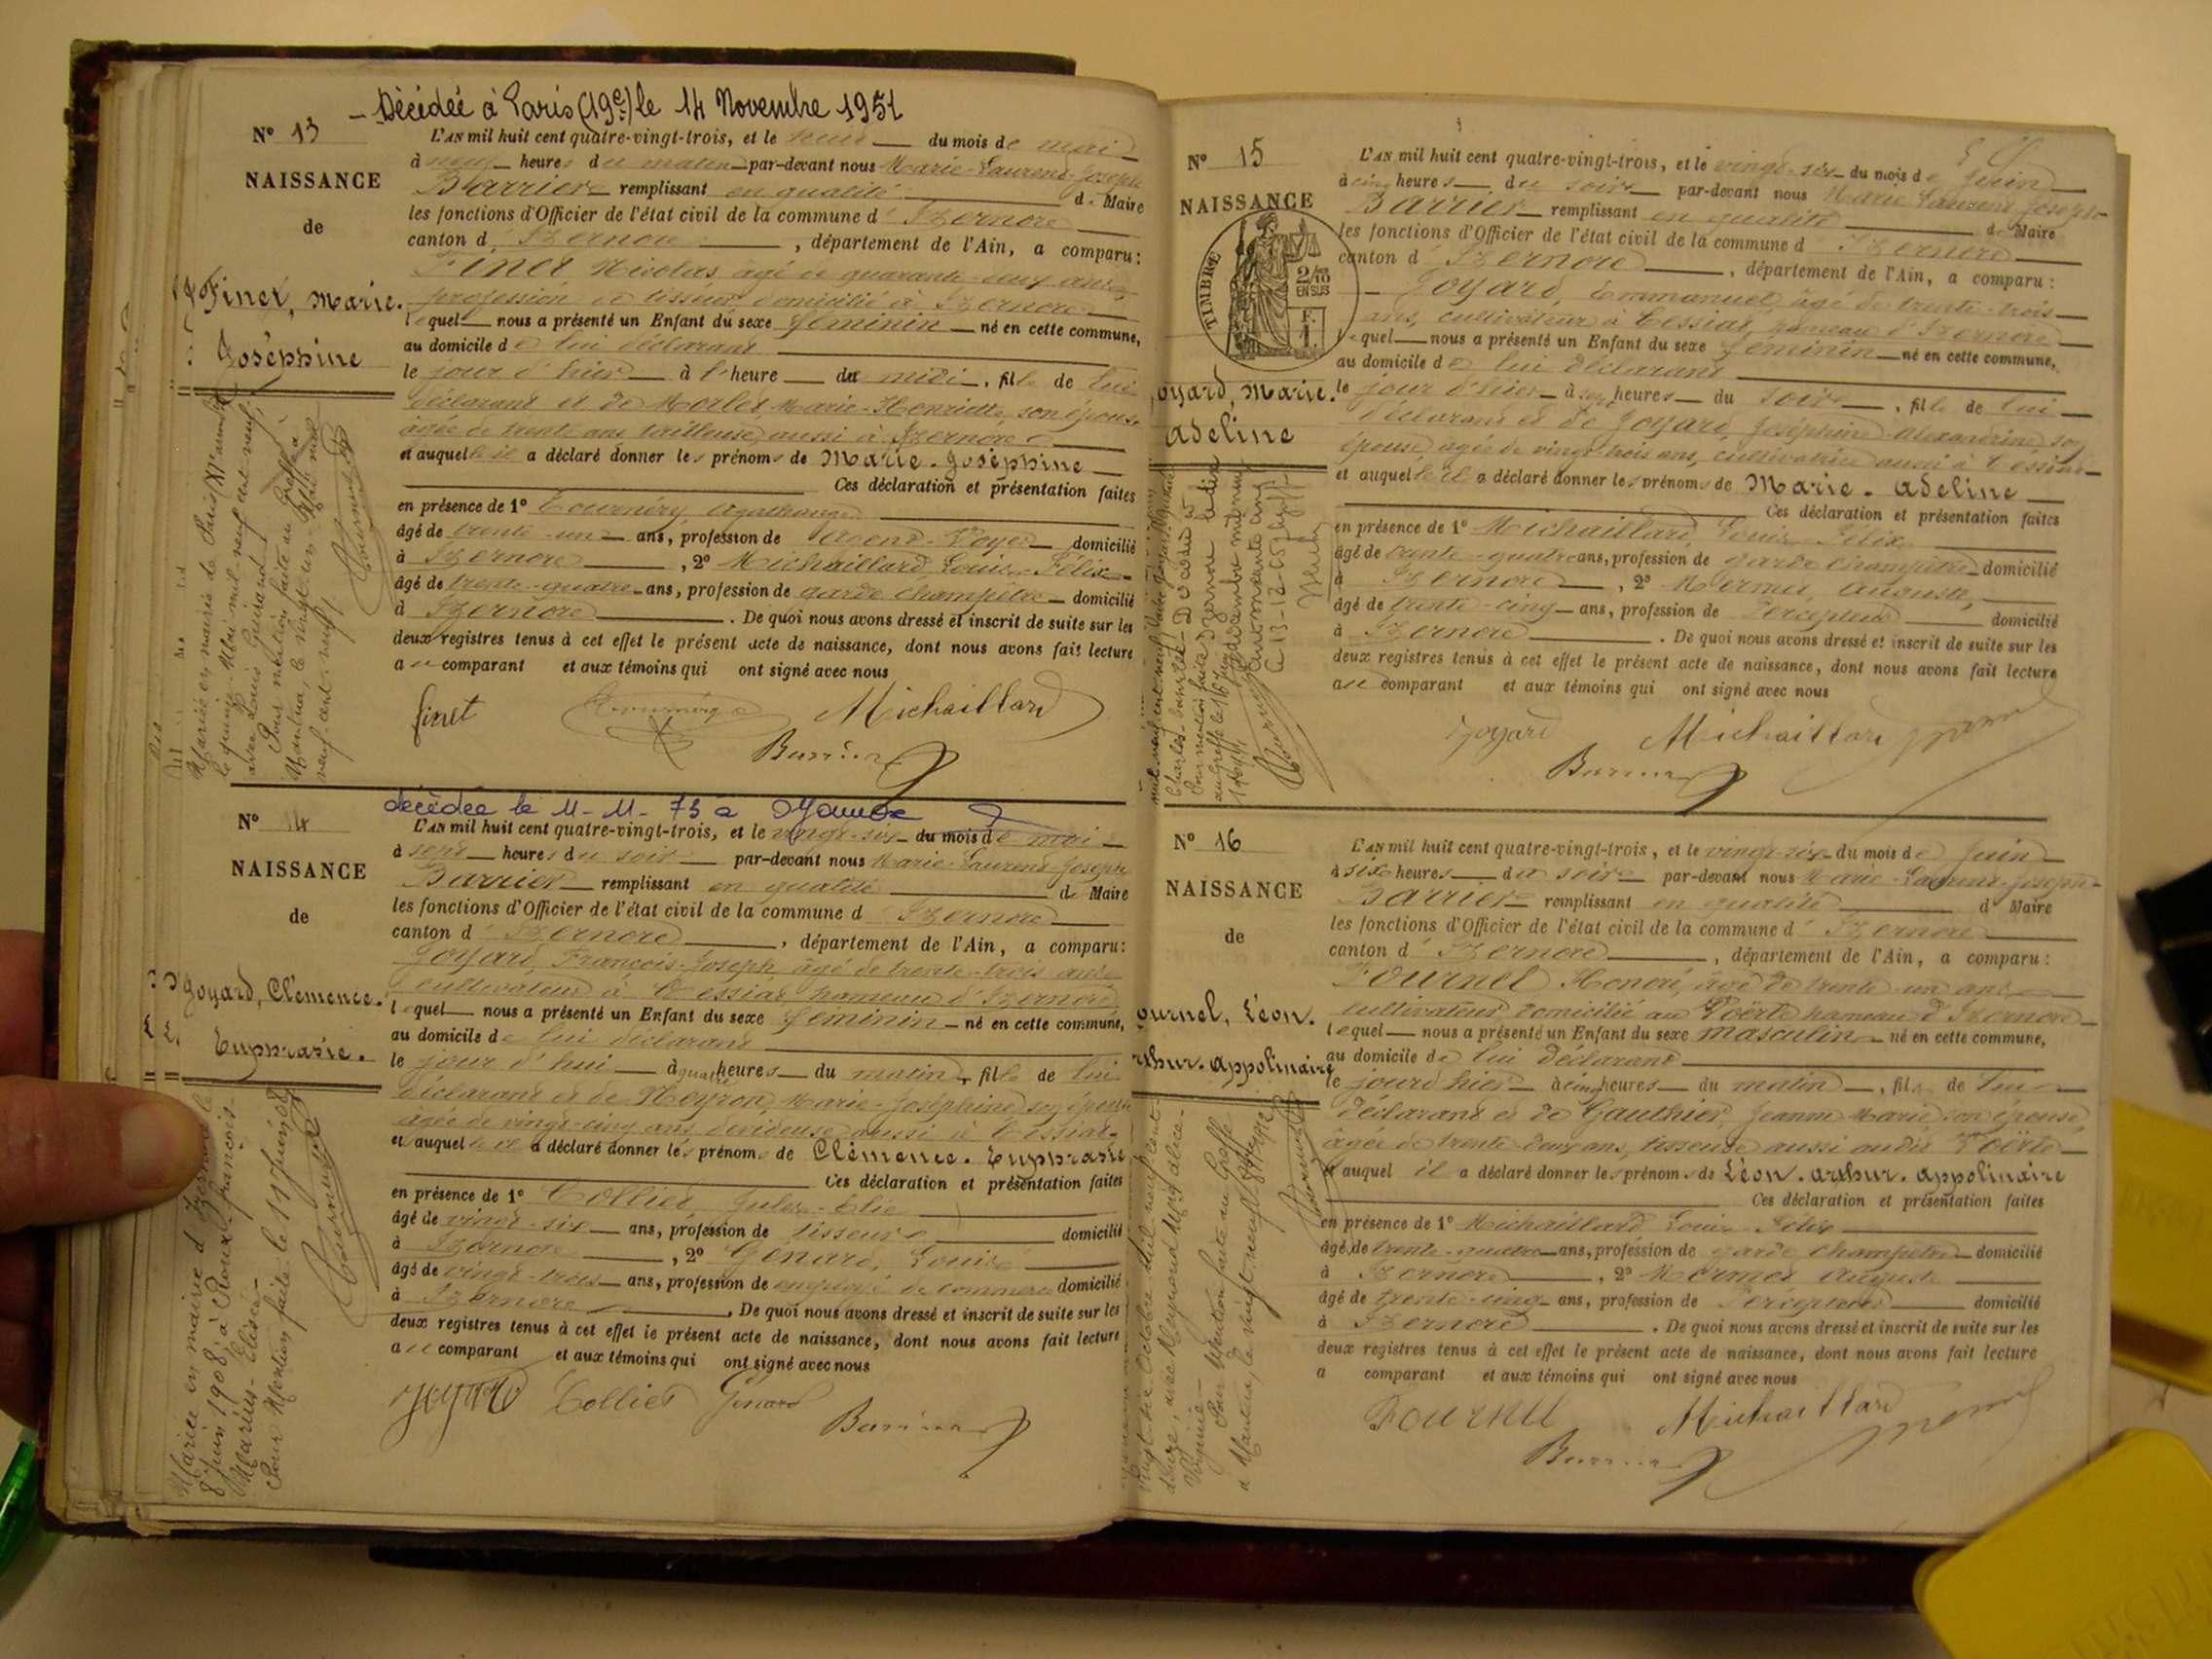 - Décédée à Paris (19e) le 14 Novembre 1951
N° 13
NAISSANCE
de
Finet, Marie.
Joséphine
L'AN mil huit cent quatre-vingt-trois, et le neuf du mois de mai
à neuf heures du matin par-devant nous Marie-Laurent-Joseph
Barrier remplissant en qualité de Maire
les fonctions d'Officier de l'état civil de la commune d'Izernore
canton d'Izernore, département de l'Ain, a comparu:
Finet Nicolas, âgé de quarante-deux ans,
profession de tisseur, domicilié à Izernore
lequel nous a présenté un Enfant du sexe féminin né en cette commune,
au domicile de lui déclarant
le jour d'hier à heure du midi, fille de lui
déclarant et de Morlet Marie-Henriette, son épouse,
âgée de trente ans, tailleuse, aussi à Izernore
et auquel il a déclaré donner les prénoms de Marie-Joséphine
Ces déclaration et présentation faites
en présence de 1° Tournéry
âgé de trente-un ans, profession de Agent-Voyer domicilié
à Izernore, 2° Michaillard, Louis-Félix
âgé de trente-quatre ans, profession de garde champêtre domicilié
à Izernore. De quoi nous avons dressé et inscrit de suite sur les
deux registres tenus à cet effet le présent acte de naissance, dont nous avons fait lecture
au comparant et aux témoins qui ont signé avec nous
finet Michaillard
Barrier
Mariée en mairie de Paris
le quinze Mai mil neuf cent neuf,
avec Louis Guirand
Pour mention faite au Greffe à
Nantua, le vingt-un Mai mil
neuf cent neuf
décédée le 11-11-73 à Oyonnax
N° 14
NAISSANCE
de
Joyard, Clémence.
Euphrasie.
L'AN mil huit cent quatre-vingt-trois, et le vingt-six du mois de mai
à sept heures du soir par-devant nous Marie-Laurent-Joseph
Barrier remplissant en qualité de Maire
les fonctions d'Officier de l'état civil de la commune d'Izernore
canton d'Izernore, département de l'Ain, a comparu:
Joyard, François-Joseph, âgé de trente-trois ans
cultivateur à Tessiat, hameau d'Izernore
lequel nous a présenté un Enfant du sexe féminin né en cette commune,
au domicile de lui déclarant
le jour d'hui à quatre heures du matin, fille de lui
déclarant et de Neyron, Marie-Joséphine son épouse
âgée de vingt-cinq ans, dévideuse aussi à Tessiat
et auquel il a déclaré donner les prénoms de Clémence. Euphrasie
Ces déclaration et présentation faites
en présence de 1° Collier, Jules-Elie
âgé de vingt-six ans, profession de tisseur domicilié
à Izernore, 2° Genard, Louis
âgé de vingt-trois ans, profession de employé de commerce domicilié
à Izernore. De quoi nous avons dressé et inscrit de suite sur les
deux registres tenus à cet effet le présent acte de naissance, dont nous avons fait lecture
au comparant et aux témoins qui ont signé avec nous
Joyard Collier Genard
Barrier
Mariée en mairie d'Izernore le
8 Juin 1908 à Roux François-
Marius-Elisée-
Pour Mention faite le 11 Juin 08
N° 15
NAISSANCE
TIMBRE
2/10
EN SUS
F.
1.
oyard, Marie.
Adeline
L'AN mil huit cent quatre-vingt-trois, et le vingt-six du mois de Juin
à cinq heures du soir par-devant nous Marie Laurent Joseph
Barrier remplissant en qualité de Maire
les fonctions d'Officier de l'état civil de la commune d'Izernore
canton d'Izernore, département de l'Ain, a comparu:
Joyard, Emmanuel, âgé de trente-trois
ans, cultivateur à Tessiat, hameau d'Izernore
lequel nous a présenté un Enfant du sexe féminin né en cette commune,
au domicile de lui déclarant
le jour d'hier à heures du soir, fille de lui
déclarant et de Joyard, Joséphine-Alexandrine son
épouse, âgée de vingt-trois ans, cultivatrice aussi à Tessiat
et auquel il a déclaré donner les prénoms de Marie-Adeline
Ces déclaration et présentation faites
en présence de 1° Michaillard, Louis Félix
âgé de trente-quatre ans, profession de garde champêtre domicilié
à Izernore, 2° Mermet, Auguste,
âgé de trente-cinq ans, profession de Percepteur domicilié
à Izernore. De quoi nous avons dressé et inscrit de suite sur les
deux registres tenus à cet effet le présent acte de naissance, dont nous avons fait lecture
au comparant et aux témoins qui ont signé avec nous
Joyard Michaillard
Barrier
Pour mention faite
au greffe le 16
Décédée à
Izernore le dix
décembre mil neuf
soixante cinq
Le 13-12-65
N° 16
NAISSANCE
de
ournel, Léon.
rthur. Appolinaire
L'AN mil huit cent quatre-vingt-trois, et le vingt-six du mois de Juin
à six heures du soir par-devant nous Marie-Laurent-Joseph
Barrier remplissant en qualité d Maire
les fonctions d'Officier de l'état civil de la commune d'Izernore
canton d'Izernore, département de l'Ain, a comparu:
Fournel Honoré, âgé de trente-un ans
cultivateur domicilié au Voërte hameau d'Izernore
lequel nous a présenté un Enfant du sexe masculin né en cette commune,
au domicile de lui déclarant
le jour d'hier à cinq heures du matin, fils de lui
déclarant et de Gauthier, Jeanne Marie son épouse,
âgée de trente-deux ans, tisseuse aussi audit Voërte
et auquel il a déclaré donner les prénoms de Léon. Arthur. Appolinaire
Ces déclaration et présentation faites
en présence de 1° Michaillard Louis Félix
âgé de trente-quatre ans, profession de garde champêtre domicilié
à Izernore, 2° Mermet Auguste
âgé de trente-cinq ans, profession de Percepteur domicilié
à Izernore. De quoi nous avons dressé et inscrit de suite sur les
deux registres tenus à cet effet le présent acte de naissance, dont nous avons fait lecture
a comparant et aux témoins qui ont signé avec nous
Fournel Michaillard
Barrier
Octobre mil neuf cent
douze, avec Reymond Alice
Virginie
Pour Mention faite au Greffe
à Nantua, le vingt-neuf 8bre 1912